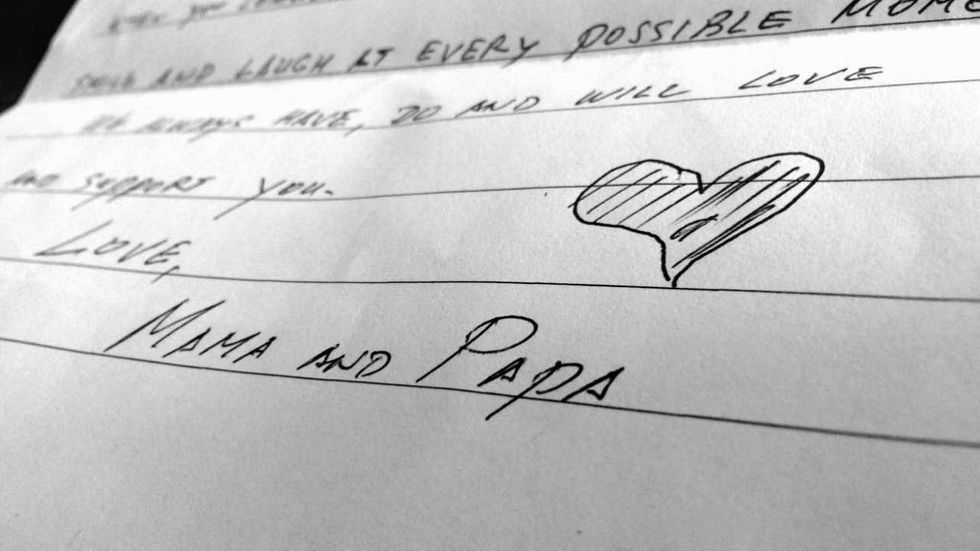 WHEN YOU
SMILE AND LAUGH AT EVERY POSSIBLE
WE ALWAYS HAVE, DO AND WILL LOVE
AND SUPPORT YOU.
LOVE,
MAMA AND PAPA